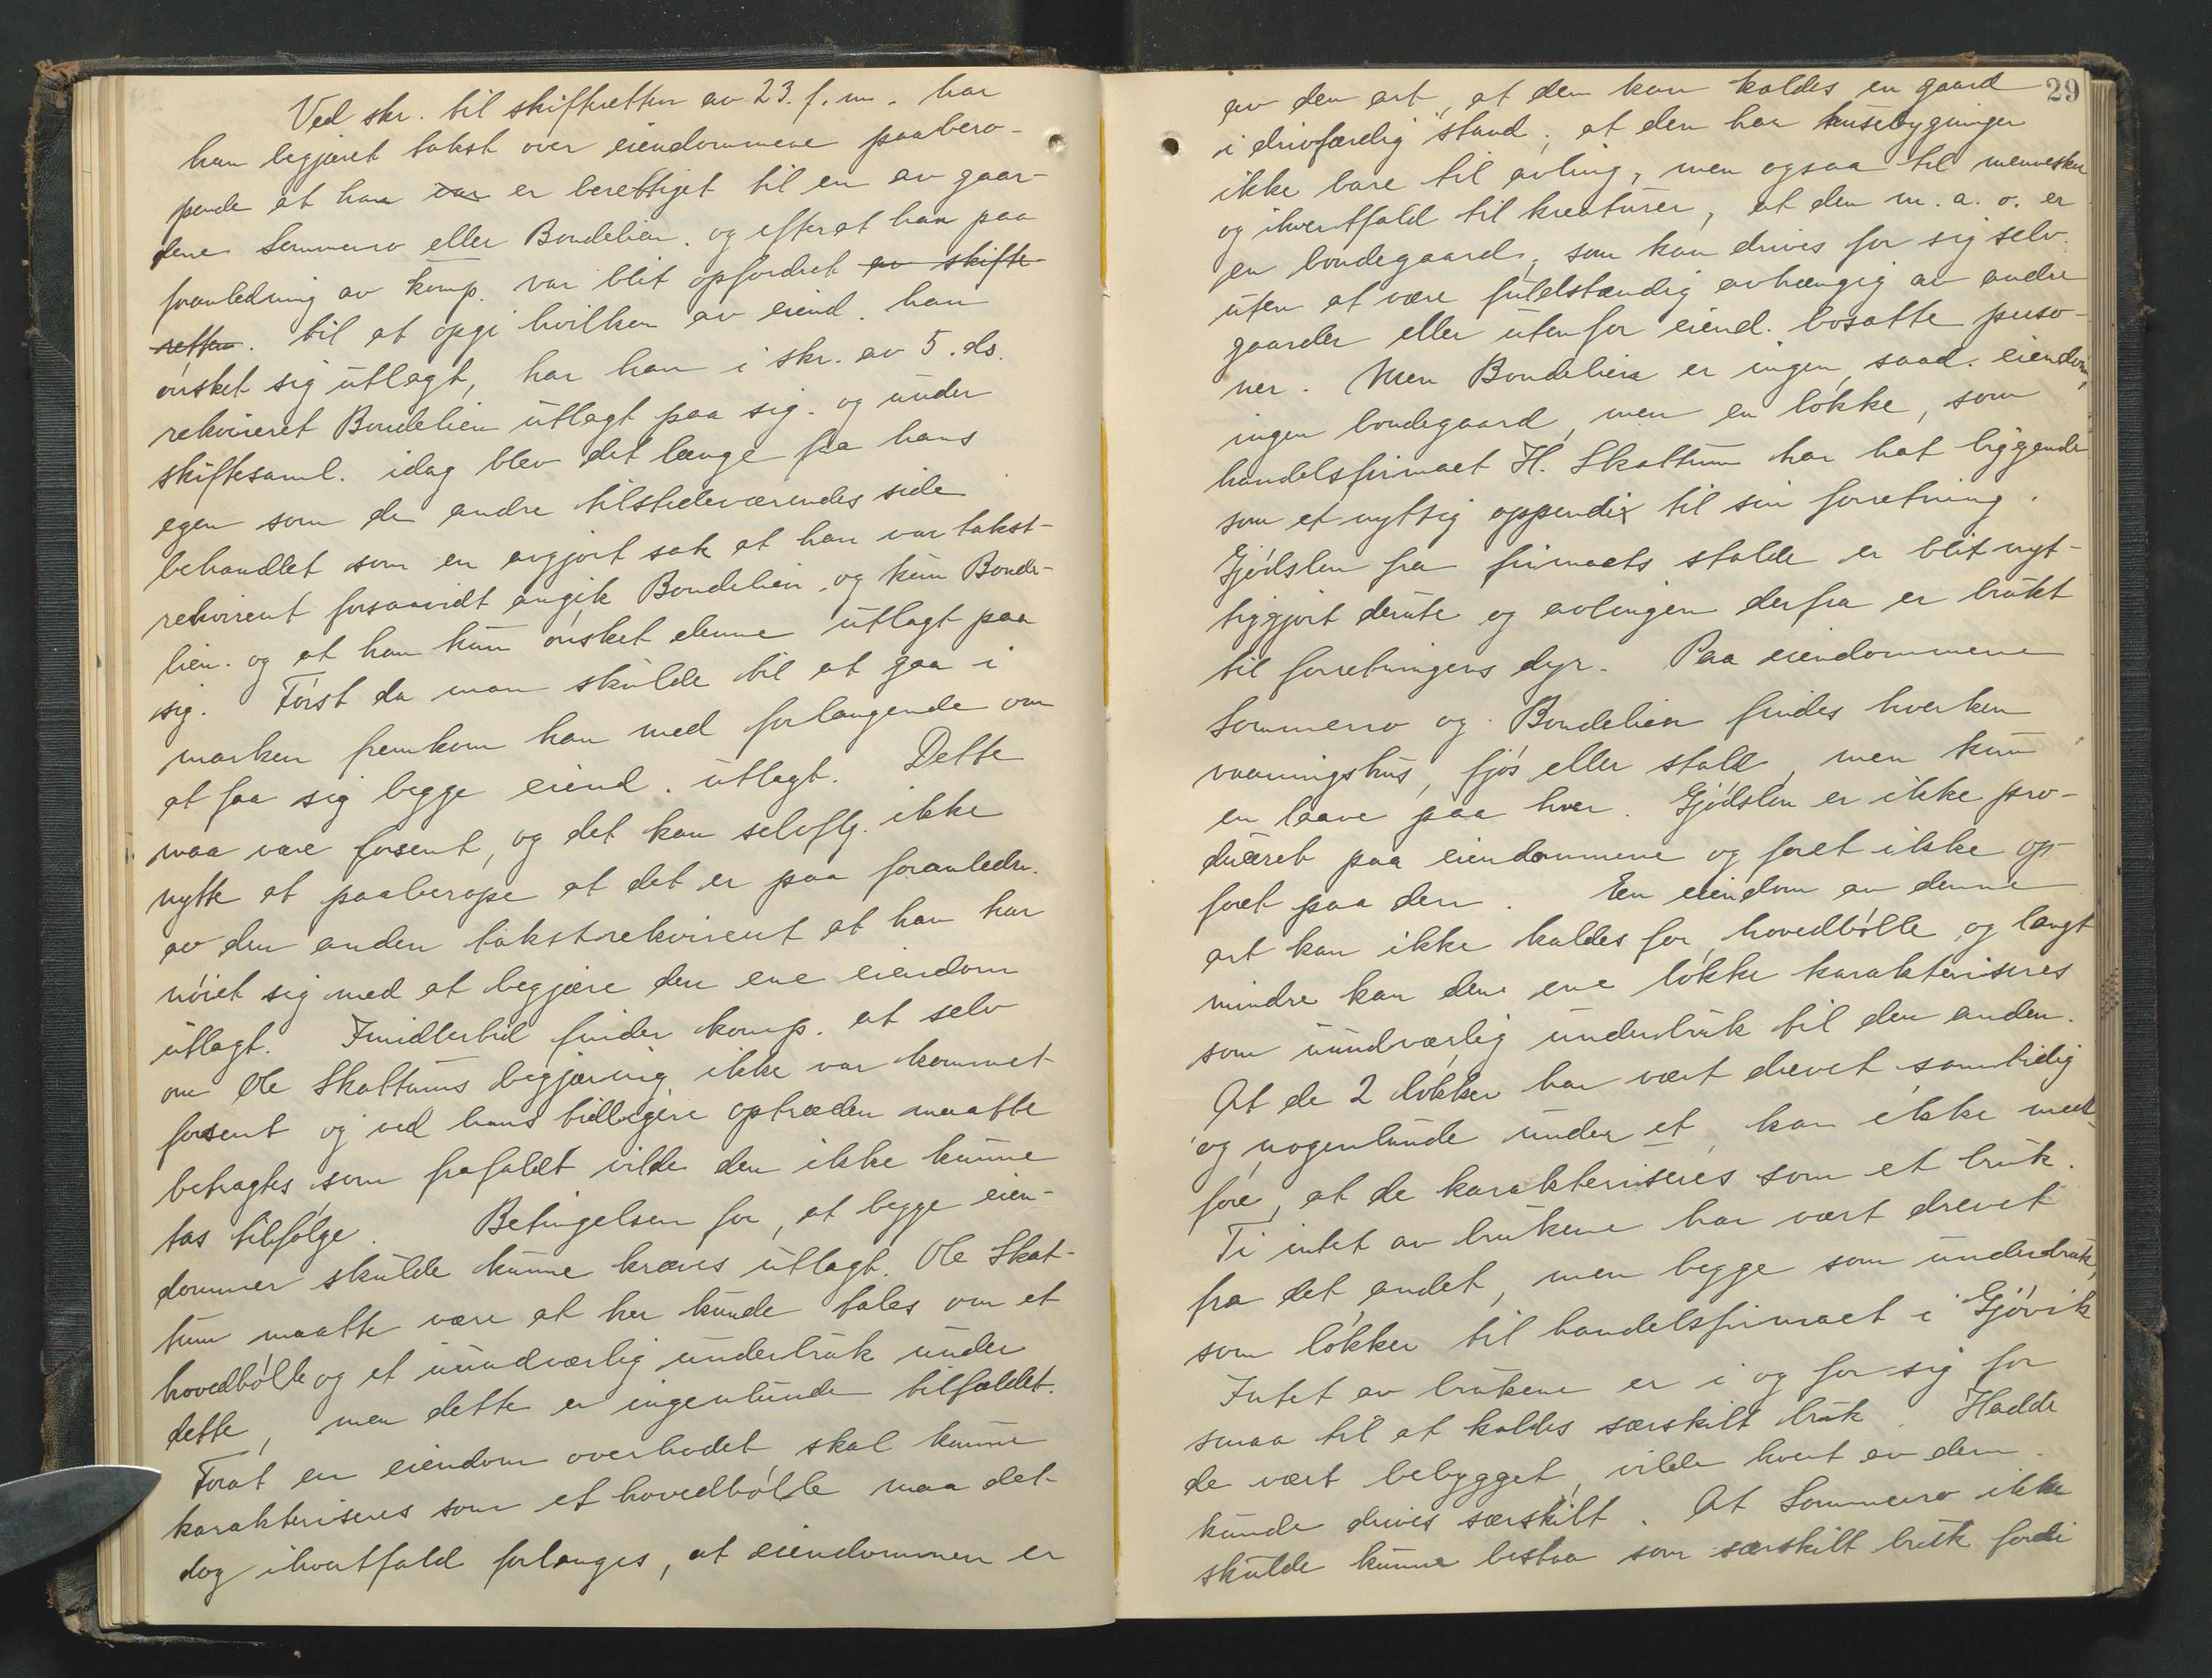 Ved skr. til skifteretten av 23. f. m. har
han begjæret takst over eiendommene paabero-
pende at han var er berettiget til en av gaar-
dene Sommerro eller Bondelien. og efterat han paa
foranledning av komp. var blit opfordret av skifte-
retten. til at opgi hvilken av eiend. han
ønsket sig utlagt, har han i skr. av 5. ds.
rekvireret Bondelien utlagt paa sig. og under
skiftesaml. idag blev det længe fra hans
egen som de andre tilstedeværendes side
behandlet som en avgjort sak at han var takst-
rekvirent forsaavidt angik Bondelien. og kun Bonde-
lien. og at han kun ønsket denne utlagt paa
sig. Først da man skulde til at gaa i
marken fremkom han med forlangende om
at faa sig begge eiend. utlagt. Dette
maa være forsent, og det kan selvflg. ikke
nytte at paaberope at det er paa foranledn.
av den anden takstrekvirent at han har
nøiet sig med at begjære den ene eiendom
utlagt. Imidlertid finder komp. at selv
om Ole Skattums begjæring ikke var kommet
forsent og ved hans tidligere optræden maatte
betragtes som frafaldt vilde den ikke kunne
tas tilfølge. Betingelsen for, at begge eien-
dommer skulde kunne kræves utlagt. Ole Skat-
tum maatte være at her kunde tales om et
hovedbølle og et uundværlig underbruk under
dette, men dette er ingenlunde tilfældet.
Forat en eiendom overhodet skal kunne
karakteriseres som et hovedbølle maa det
dog ihvertfald forlanges, at eiendommen er
29
av den art, at den kan kaldes en gaard
i drivfærdig stand, at den har husebygninger
ikke bare til avling, men ogsaa til mennesker
og ihvertfald til kreaturer, at den m. a. o. er
en bondegaard, som kan drives for sig selv.
uten at være fuldstændig avhængig av andre
gaarder eller utenfor eiend. bosatte perso-
ner. Men Bondelien er ingen saad. eiendom,
ingen bondegaard, men en løkke, som
handelsfirmaet H. Skattum har hat liggende
som et nyttig appendix til sin forretning.
Gjødslen fra firmaets stalde er blit nyt-
tiggjort derute og avlingen derfra er brukt
til forretningens dyr. Paa eiendommene
Sommerro og Bondelien findes hverken
vaaningshus, fjøs eller stald, men kun
en laave paa hver. Gjødslen er ikke pro-
duceret paa eiendommene og foret ikke op-
foret paa den. En eiendom av denne
art kan ikke kaldes for hovedbølle og langt
mindre kan den ene løkke karakteriseres
som uundværlig underbruk til den anden.
At de 2 løkker har vært drevet samtidig
og nogenlunde under et, kan ikke med-
føre, at de karakteriseres som et bruk.
Ti intet av brukene har vært drevet
fra det andet, men begge som underbruk,
som løkker til handelsfirmaet i Gjøvik
Intet av brukene er i og for sig for
smaa til at kaldes særskilt bruk. Hadde
de vært bebygget, vilde hvert av dem
kunde drives særskilt. At Sommerro ikke
skulde kunne bestaa som særskilt bruk fordi